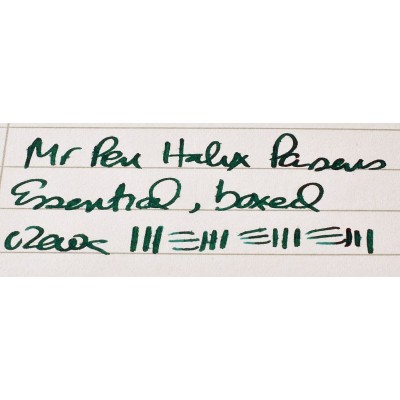 Mr Pen Halyx Parsons
Essential, boxed